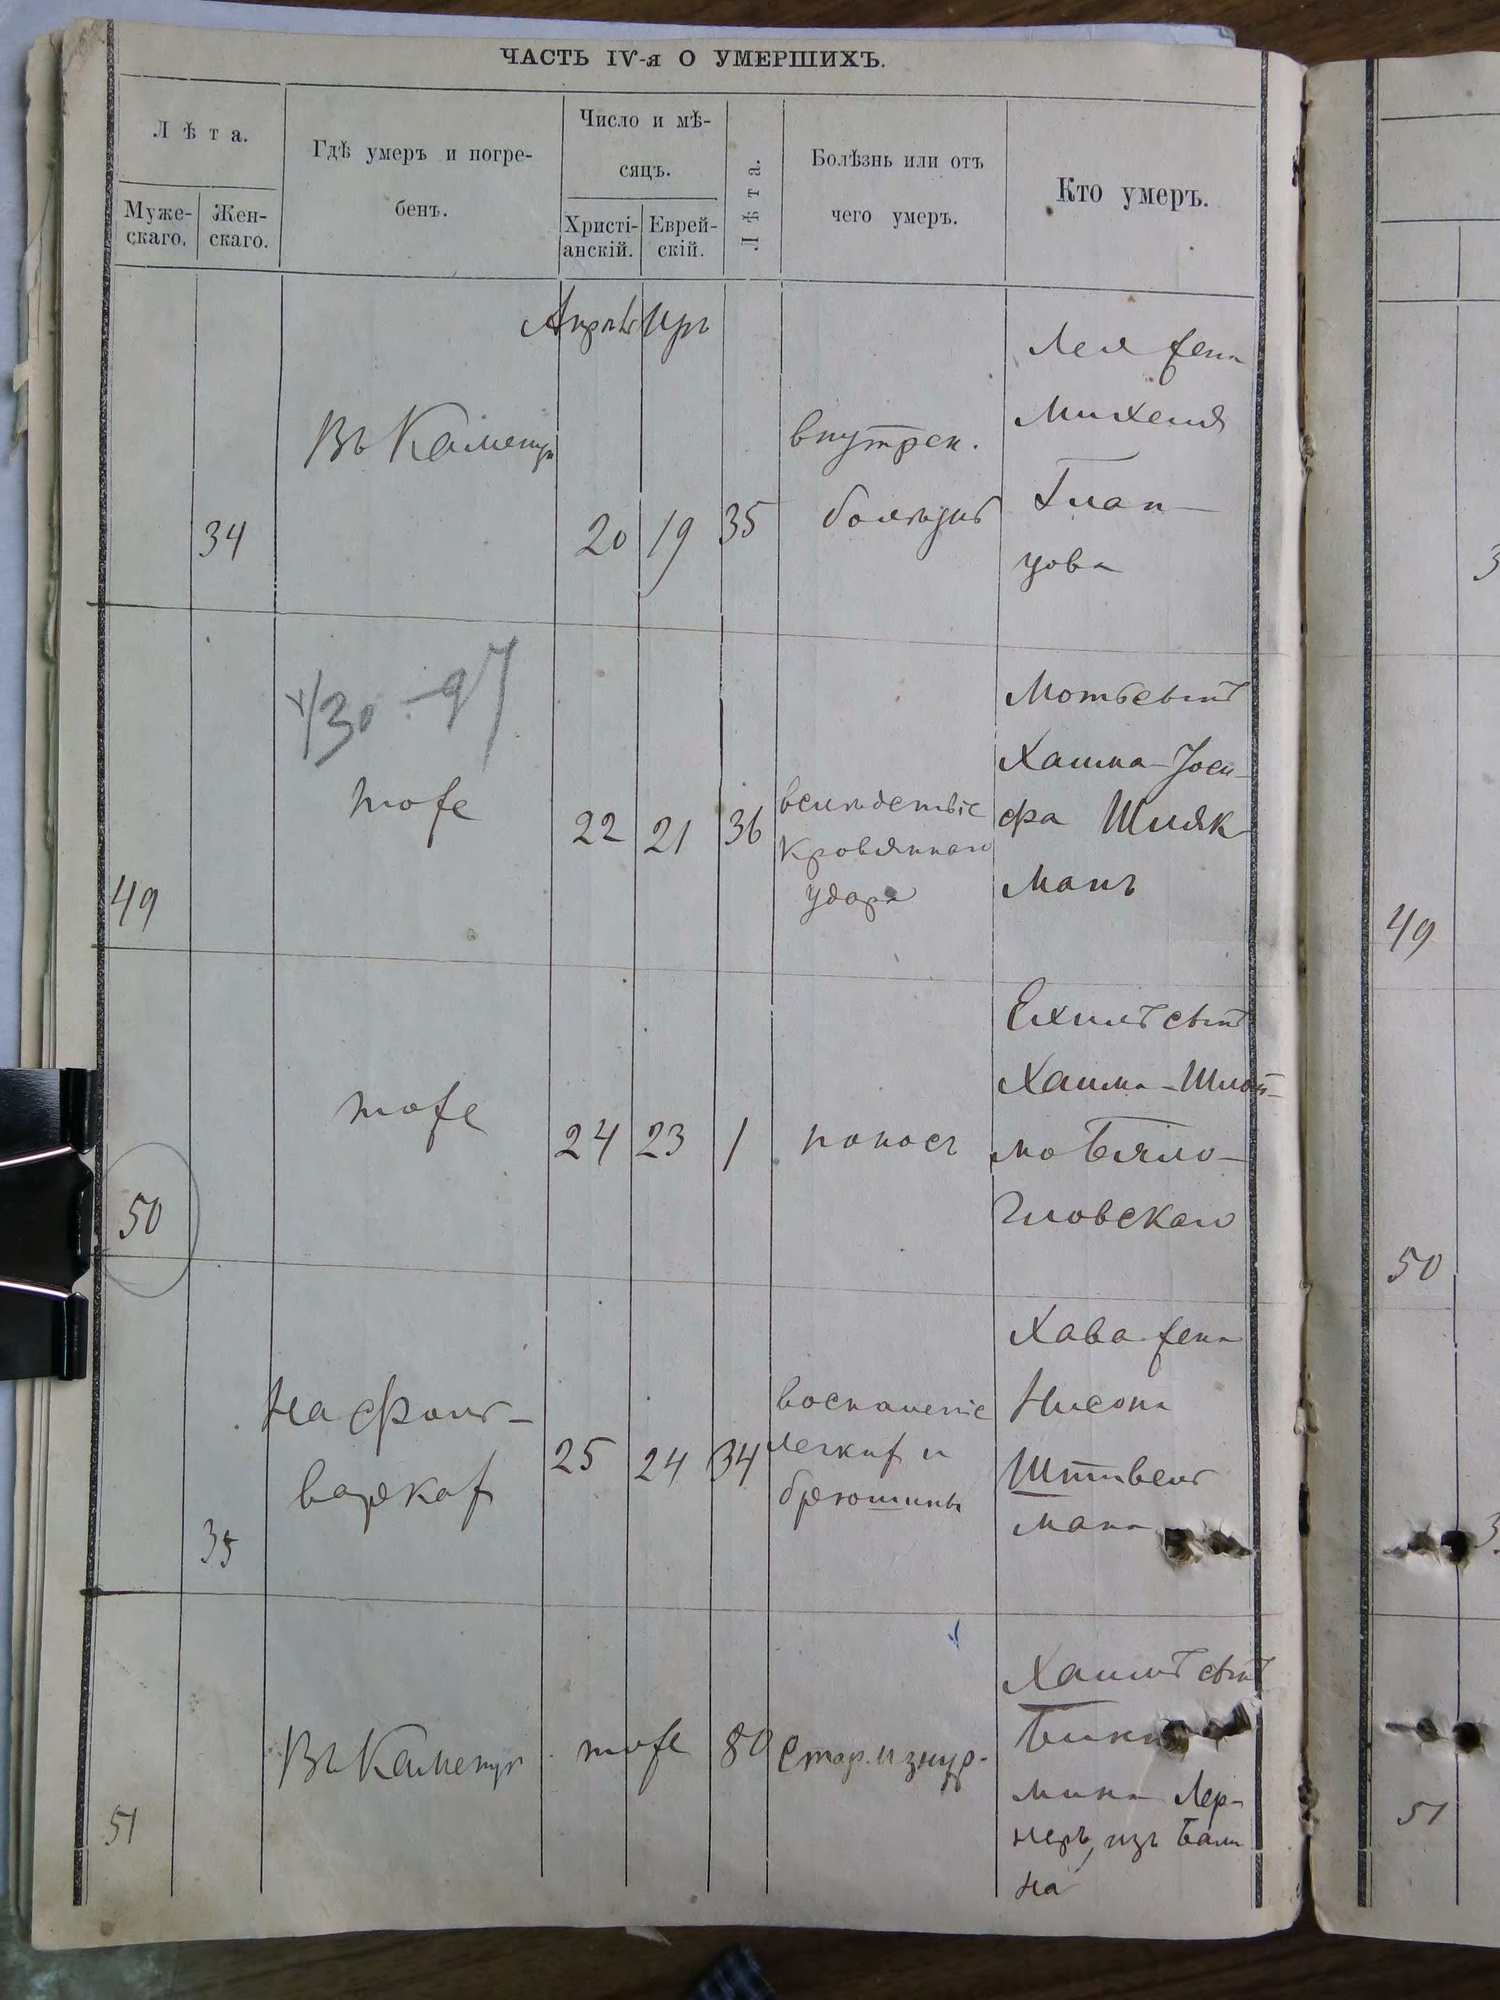 ЧАСТЬ IV-я О УМЕРШИХЪ.
Лѣта.
Муже-
скаго.
Жен-
скаго.
Гдѣ умеръ и погре-
бенъ.
Число и мѣ-
сяцъ.
Христі-
анскій.
Еврей-
скій.
Лѣта.
Болѣзнь или отъ
чего умеръ.
Кто умеръ.
34
Въ Каменцѣ
Апрѣль Иръ
20
19
35
внутрен.
болѣзнь
Лея жена
Михеля
Глан-
цова
3
49
1/30 - 97
тоже
22
21
36
вслѣдствіе
кровяннаго
удара
Мотьсынъ
Хаима-Іоси-
фа Шляк-
манъ
49
50
тоже
24
23
1
поносъ
Ехильсынъ
Хаима-Шлой-
мо Бѣло-
гловскаго
50
35
На Фоль-
варкахъ
25
24
34
воспаленіе
легкихъ и
брюшины
Хава жена
Нисона
Штивель
мана
3
51
Въ Каменцѣ
тоже
80
Стар. изнур.
Хаимъ сынъ
мина Лер-
неръ, изъ Бал
на
51